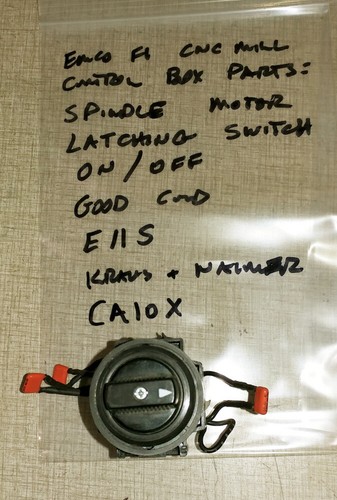 EMCO F1 CNC MILL
CONTROL BOX PARTS:
SPINDLE MOTOR
LATCHING SWITCH
ON/OFF
GOOD COND
E11S
KRAUS + NAIMER
CA10X